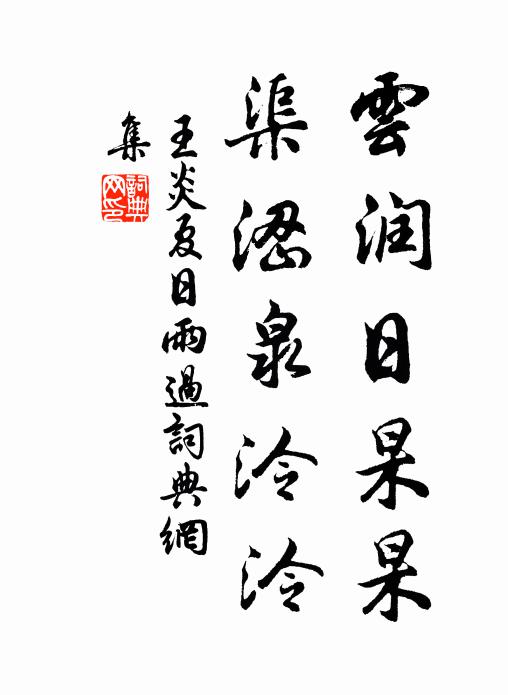 雲润日杲杲
渠涩泉泠泠
王炎夏日雨過詞典網
集
詞典
网印